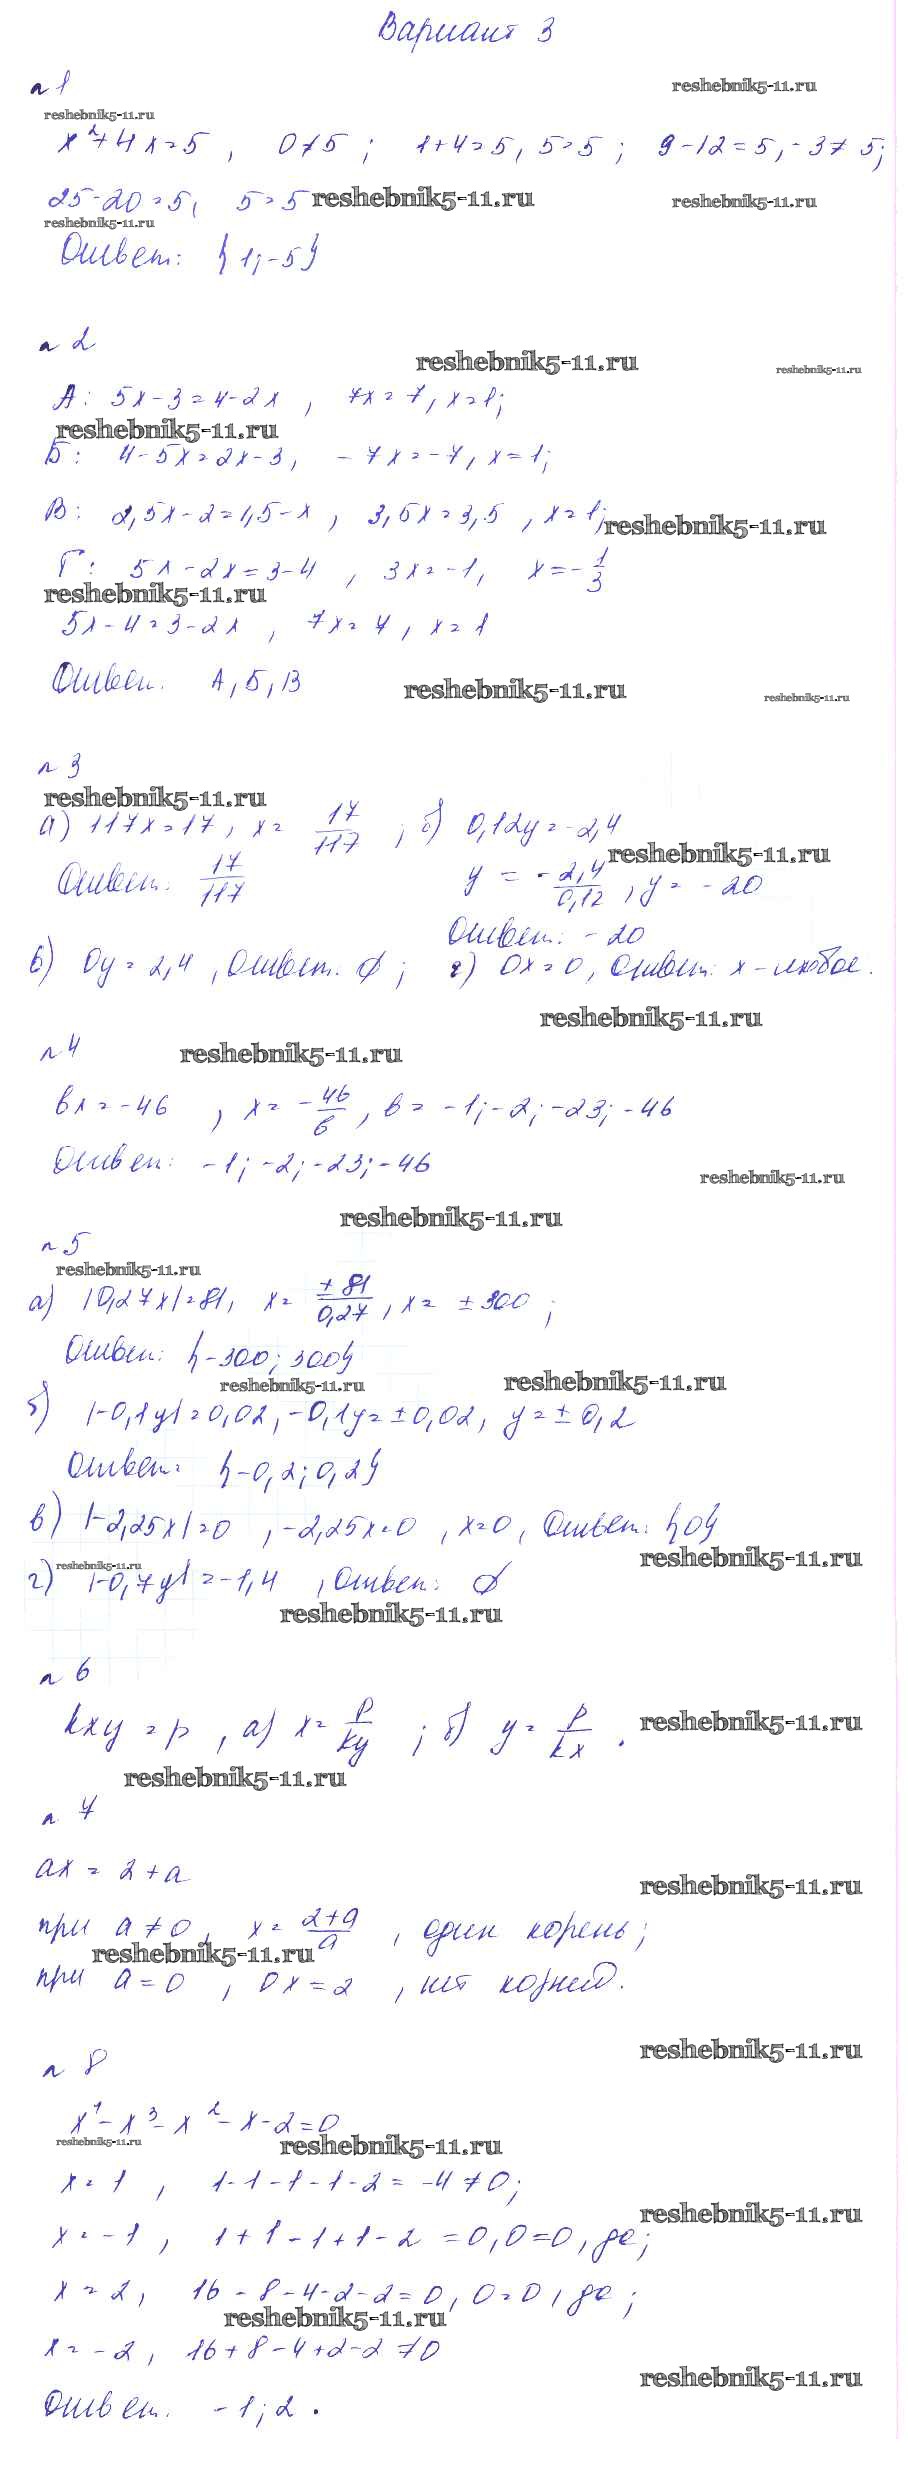 Вариант 3
n 1
reshebnik5-11.ru
reshebnik5-11.ru
x²+4x=5, 0≠5; 1+4=5, 5=5; 9-12=5, -3≠5;
25-20=5, 5=5 reshebnik5-11.ru reshebnik5-11.ru
reshebnik5-11.ru
Ответ: {1;-5}
n 2
reshebnik5-11.ru reshebnik5-11.ru
А: 5x-3=4-2x, 7x=7, x=1;
reshebnik5-11.ru
Б: 4-5x=2x-3, -7x=-7, x=1;
В: 2,5x-2=1,5-x, 3,5x=3,5, x=1; reshebnik5-11.ru
Г: 5x-2x=3-4, 3x=-1, x=-1/3
reshebnik5-11.ru
5x-4=3-2x, 7x=7, x=1
Ответ. А, Б, В reshebnik5-11.ru reshebnik5-11.ru
n 3
reshebnik5-11.ru
а) 117x=17, x= 17/117; б) 0,12y=-2,4
reshebnik5-11.ru
Ответ: 17/117 y = -2,4/0,12, y= -20
Ответ: -20
в) 0y=2,4, Ответ. ∅; г) 0x=0, Ответ: x-любое.
reshebnik5-11.ru
n 4 reshebnik5-11.ru
bx=-46, x= -46/b, b= -1; -2; -23; -46
Ответ: -1; -2; -23; -46
reshebnik5-11.ru
reshebnik5-11.ru
n 5
reshebnik5-11.ru
а) |0,27x|=81, x= ±81/0,27, x= ±300;
Ответ: {-300; 300}
reshebnik5-11.ru reshebnik5-11.ru
б) |-0,1y|=0,02, -0,1y=±0,02, y=±0,2
Ответ: {-0,2; 0,2}
в) |-2,25x|=0, -2,25x=0, x=0, Ответ: {0}
reshebnik5-11.ru
reshebnik5-11.ru
г) |-0,7y|=-1,4, Ответ: ∅
reshebnik5-11.ru
n 6
kxy=p, а) x= p/ky; б) y= p/kx.
reshebnik5-11.ru
reshebnik5-11.ru
n 7
ax=2+a
reshebnik5-11.ru
при a≠0, x= 2+a/a, один корень;
reshebnik5-11.ru
при a=0, 0x=2, нет корней.
reshebnik5-11.ru
n 8
x⁴-x³-x²-x-2=0
reshebnik5-11.ru reshebnik5-11.ru
x=1, 1-1-1-1-2=-4≠0;
reshebnik5-11.ru
x=-1, 1+1-1+1-2=0, 0=0, да;
x=2, 16-8-4-2-2=0, 0=0, да;
reshebnik5-11.ru
x=-2, 16+8-4+2-2≠0
reshebnik5-11.ru
Ответ. -1; 2.